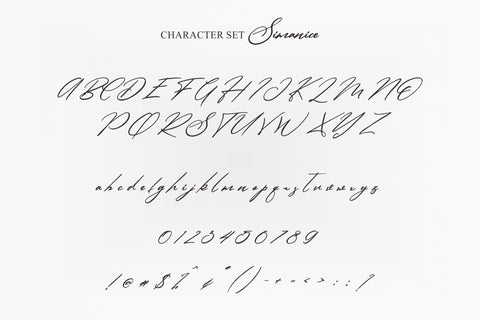 CHARACTER SET Simanice
ABCDEFGHIJKLMNO
PQRSTUVWXYZ
abcdefghijklmnopqrsTuvwxyz
0123456789
! @ # $ % ^ & * ( ) - + = < > : ; ?